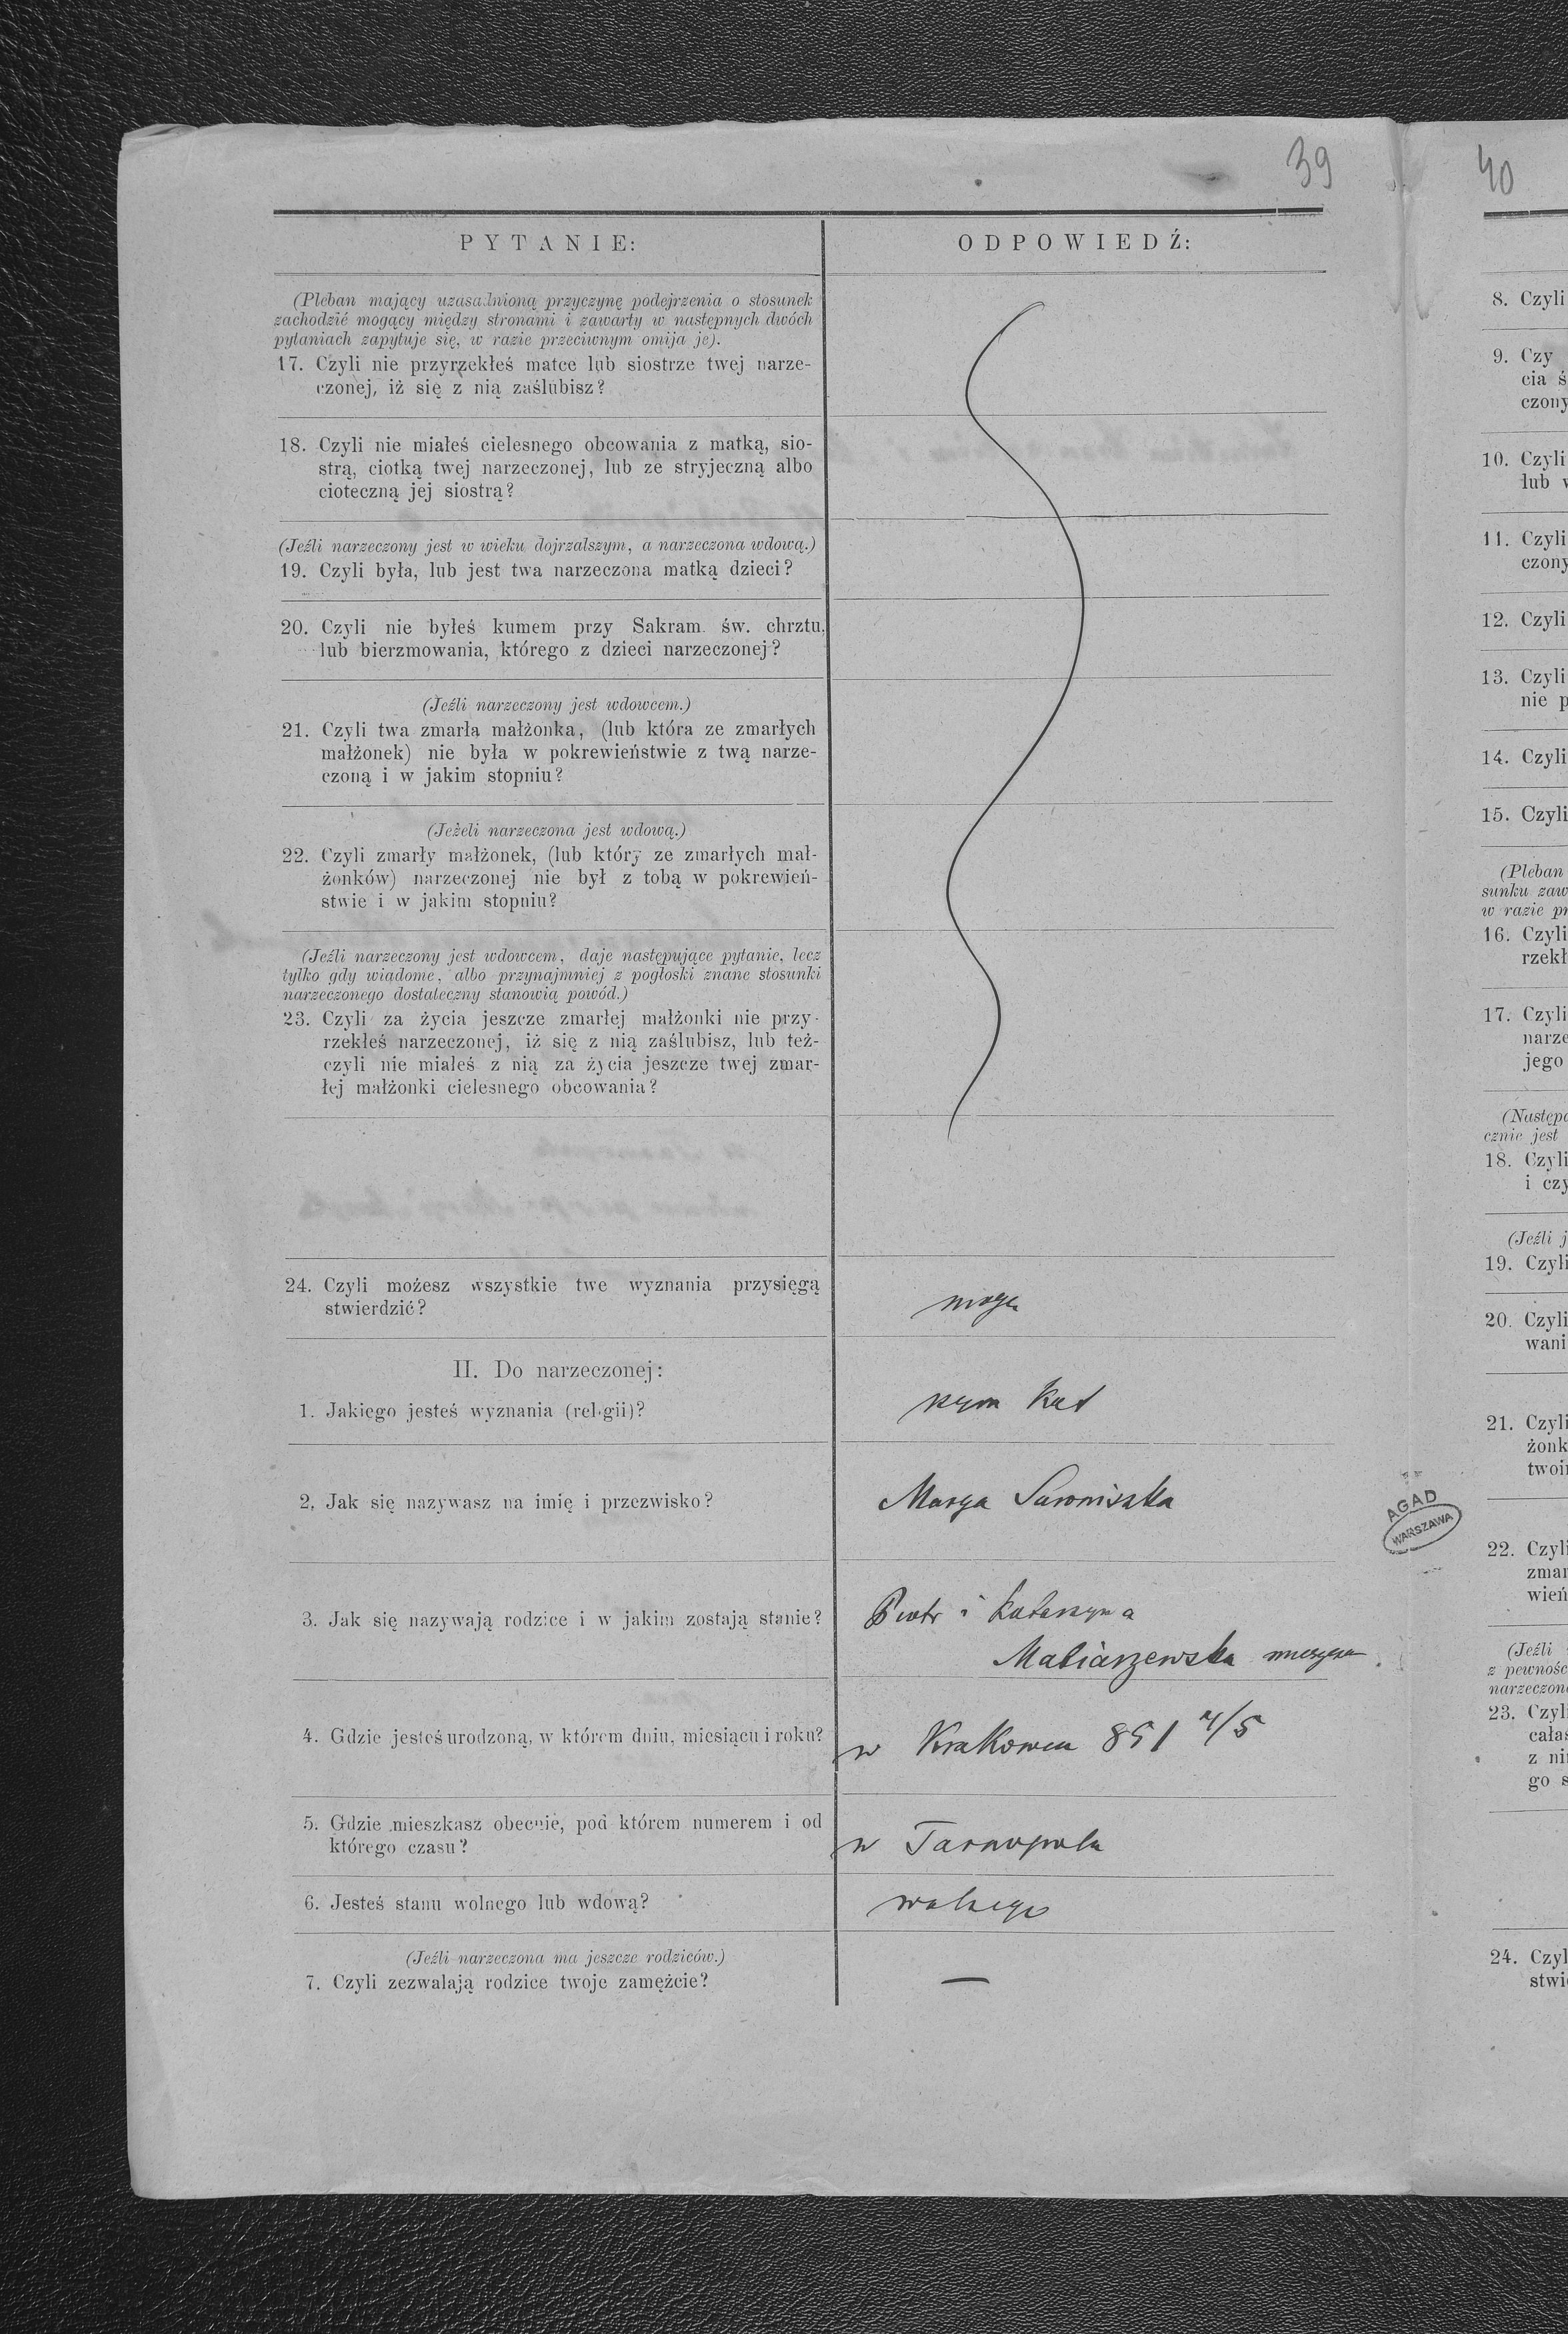 39
PYTANIE:
ODPOWIEDŹ:
(Pleban mający uzasadnioną przyczynę podejrzenia o stosunek
zachodzić mogący między stronami i zawarty w następnych dwóch
pytaniach zapytuje się, w razie przeciwnym omija je).
17. Czyli nie przyrzekłeś matce lub siostrze twej narze-
czonej, iż się z nią zaślubisz?
18. Czyli nie miałeś cielesnego obcowania z matką, sio-
strą, ciotką twej narzeczonej, lub ze stryjeczną albo
cioteczną jej siostrą?
(Jeźli narzeczony jest w wieku dojrzalszym, a narzeczona wdową.)
19. Czyli była, lub jest twa narzeczona matką dzieci?
20. Czyli nie byłeś kumem przy Sakram. św. chrztu,
lub bierzmowania, którego z dzieci narzeczonej?
(Jeźli narzeczony jest wdowcem.)
21. Czyli twa zmarła małżonka, (lub która ze zmarłych
małżonek) nie była w pokrewieństwie z twą narze-
czoną i w jakim stopniu?
(Jeżeli narzeczona jest wdową.)
22. Czyli zmarły małżonek, (lub który ze zmarłych mał-
żonków) narzeczonej nie był z tobą w pokrewień-
stwie i w jakim stopniu?
(Jeźli narzeczony jest wdowcem, daje następujące pytanie, lecz
tylko gdy wiadome, albo przynajmniej z pogłoski znane stosunki
narzeczonego dostateczny stanowią powód.)
23. Czyli za życia jeszcze zmarłej małżonki nie przy-
rzekłeś narzeczonej, iż się z nią zaślubisz, lub też-
czyli nie miałeś z nią za życia jeszcze twej zmar-
łej małżonki cielesnego obcowania?
24. Czyli możesz wszystkie twe wyznania przysięgą
stwierdzić?
mogę
II. Do narzeczonej:
1. Jakiego jesteś wyznania (religii)?
rzym kat
2. Jak się nazywasz na imię i przezwisko?
Marya
3. Jak się nazywają rodzice i w jakim zostają stanie?
Piotr i Katarzyna
Matiaszewska
4. Gdzie jesteś urodzoną, w którem dniu, miesiącu i roku?
w Krakowcu 851 4/5
5. Gdzie mieszkasz obecnie, pod którem numerem i od
którego czasu?
w Tarnopolu
6. Jesteś stanu wolnego lub wdową?
wolnego
(Jeźli narzeczona ma jeszcze rodziców.)
7. Czyli zezwalają rodzice twoje zamężcie?
—
AGAD
WARSZAWA
40
8. Czyli
9. Czy
cia ś
czony
10. Czyli
lub w
11. Czyli
czony
12. Czyli
13. Czyli
nie p
14. Czyli
15. Czyli
(Pleban
sunku zaw
w razie pr
16. Czyli
rzekł
17. Czyli
narze
jego
(Następ
cznie jest
18. Czyli
i czy
(Jeźli j
19. Czyli
20. Czyli
wani
21. Czyli
żonk
twoi
22. Czyli
zmar
wień
(Jeźli
z pewnośc
narzeczon
23. Czyl
całaś
z ni
go s
24. Czyl
stwi